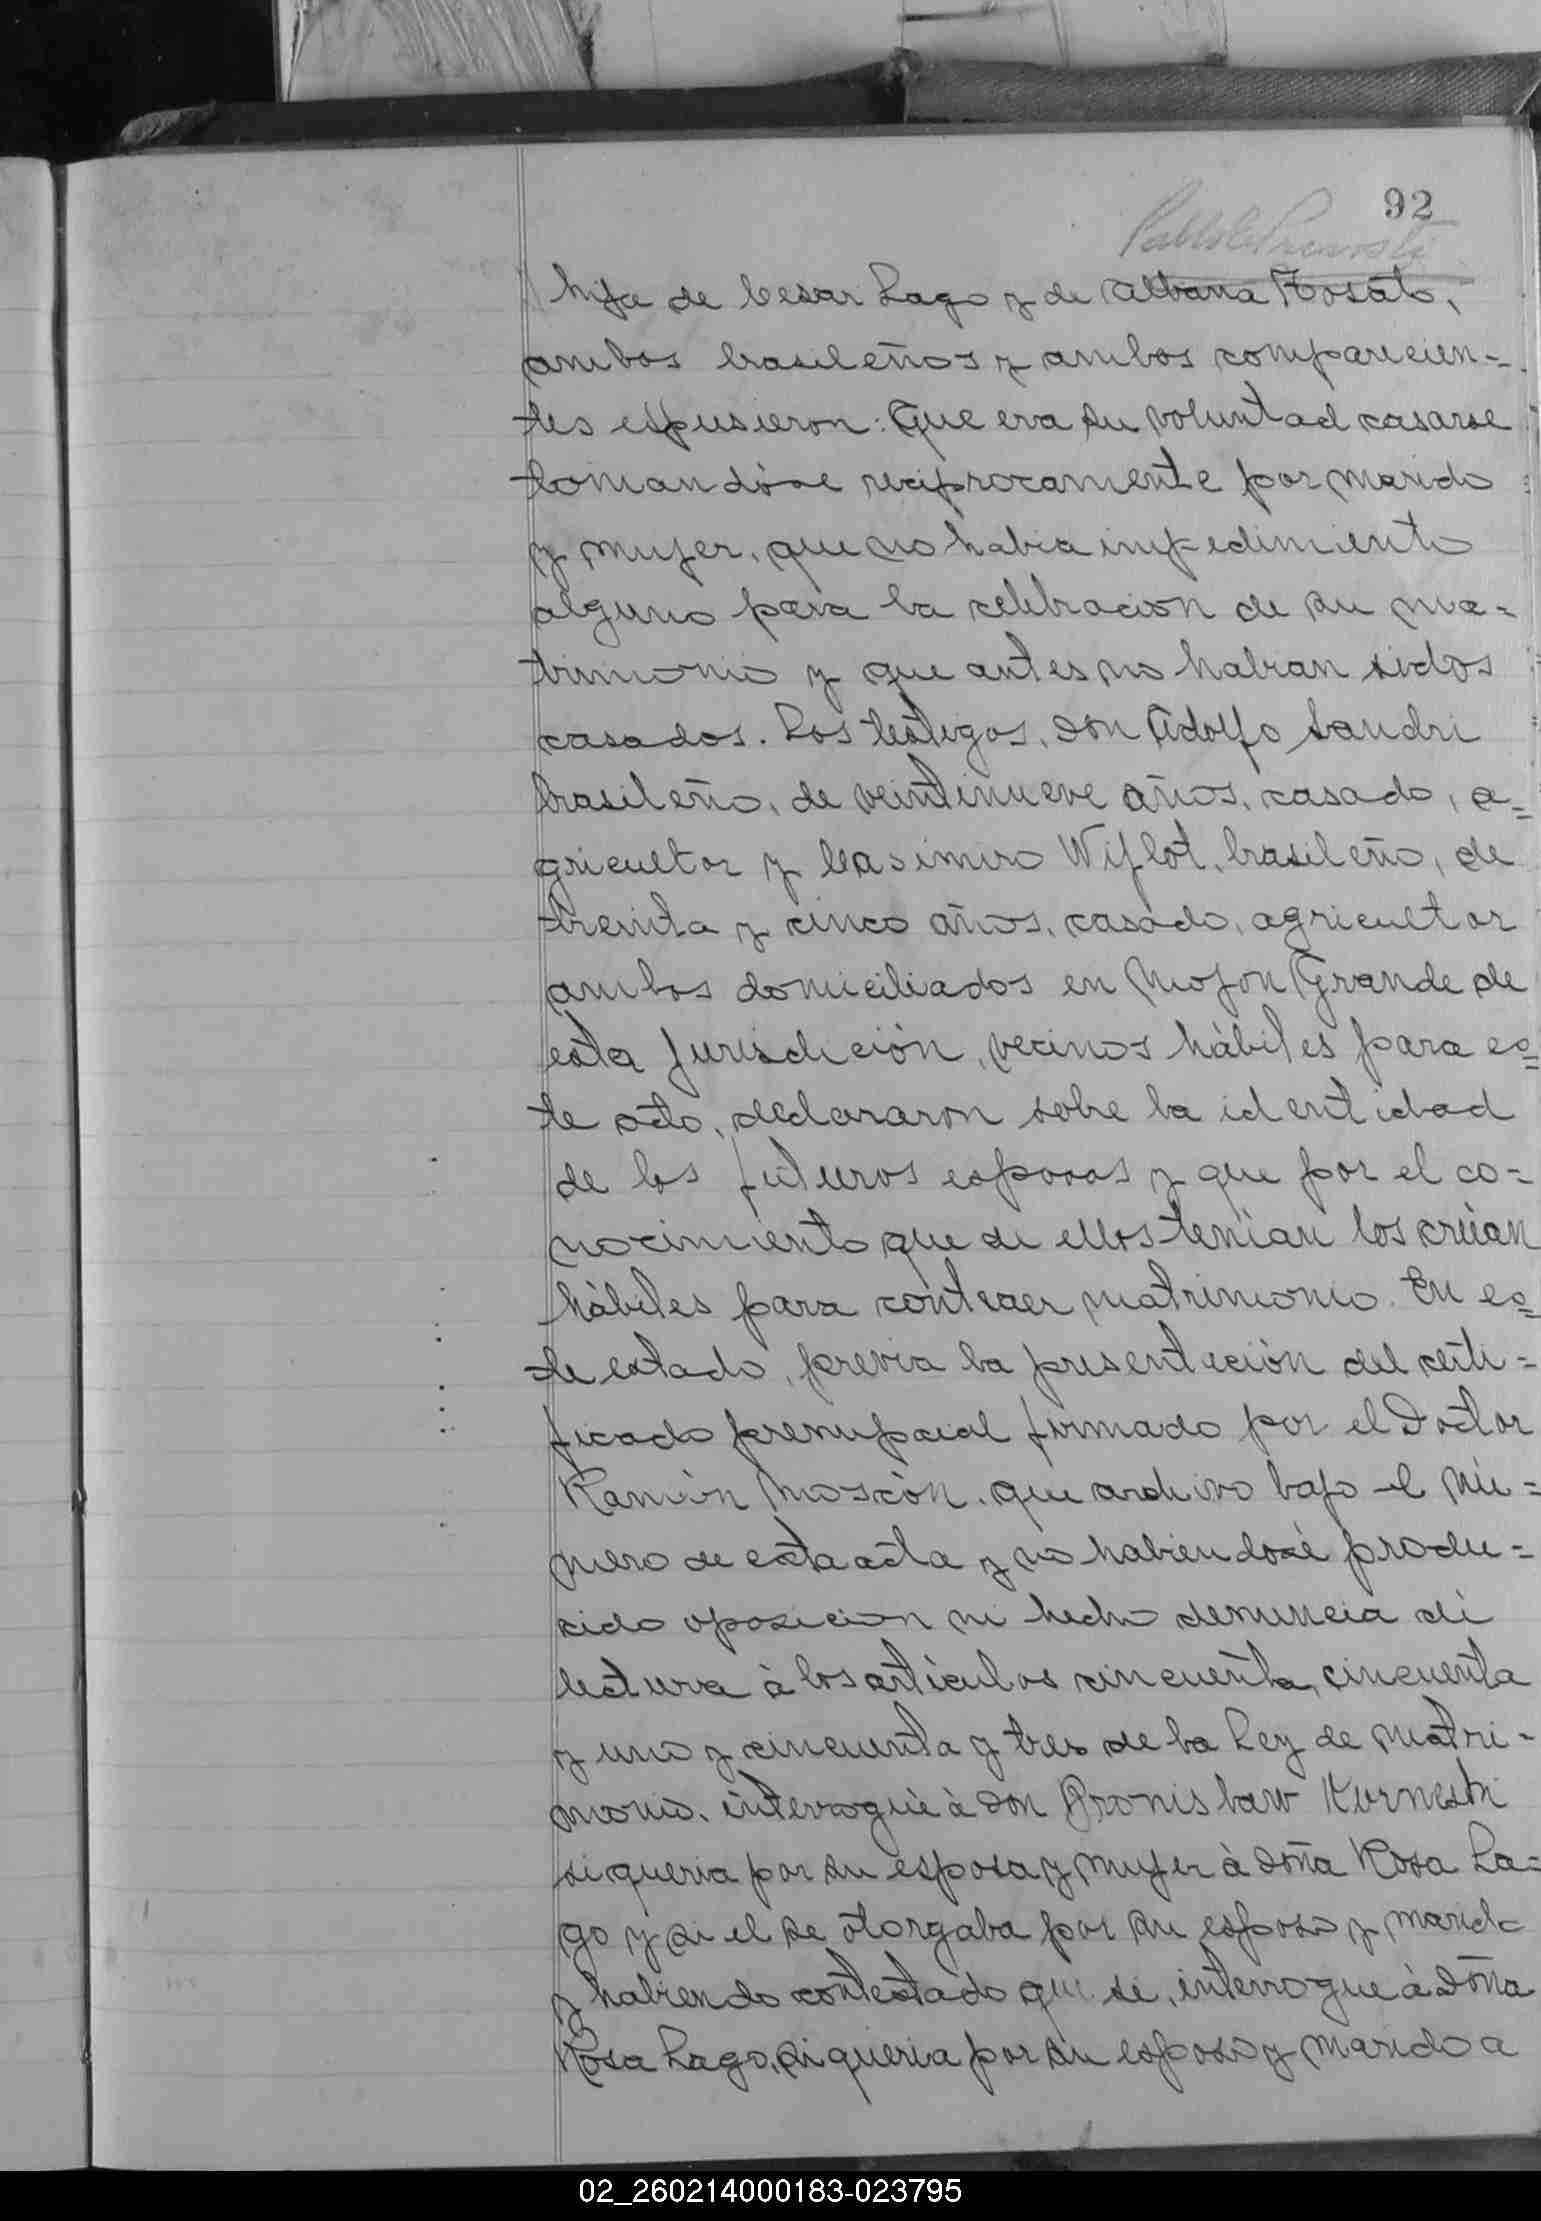 92
hija de Cesar Lago y de Albana Tosato,
ambos brasileños y ambos comparecien=
tes expusieron: Que era su voluntad casarse
tomandóse reciprocamente por marido
y mujer, que no habia impedimiento
alguno para la celebracion de su ma=
trimonio y que antes no habian sidos
casados. Los testigos, don Adolfo Sandri
brasileño, de veintinueve años, casado, a=
gricultor y Casimiro Wiflot, brasileño, de
treinta y cinco años, casado, agricultor
ambos domiciliados en Mojon Grande de
esta jurisdición, vecinos hàbiles para es=
te acto, declararon sobre la identidad
de los futuros esposos y que por el co=
nocimiento que de ellos tenian los creian
hàbiles para contraer matrimonio. En es=
te estado, previa la presentación del certi=
ficado prenupcial firmado por el Doctor
Ramòn Moscòn, que archivo bajo el nù=
mero de esta acta y no habiendosè produ=
cido oposicion ni hecho denuncia di
lectura à los artìculos cincuenta, cincuenta
y uno y cincuenta y tres de la Ley de Matri=
monio, interroguè à don Bronislaw Kurneski
si queria por su esposa y mujer à doña Rosa La=
go y si el se otorgaba por su esposo y marido
y habiendo contestado que si, interrogue à doña
Rosa Lago, si queria por su esposo y marido a
02_260214000183-023795